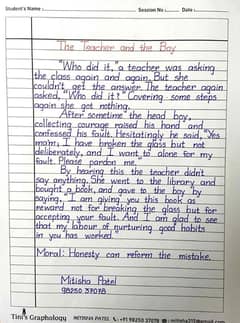 Student's Name :
Session No :
Date :
The Teacher and the Boy
"Who did it," a teacher was asking
the class again and again. But she
couldn't get the answer. The teacher again
asked, "Who did it?" Covering some steps
again she got nothing.
After sometime the head boy,
collecting courage raised his hand and
confessed his fault. Hesitatingly he said, "Yes
mam; I have broken the glass but not
deliberately, and I want to alone for my
fault. Please pardon me."
By hearing this the teacher didn't
say anything. She went to the library and
bought a book, and gave to the boy by
saying, "I am giving you this book as
reward not for breaking the glass but for
accepting your fault. And I am glad to see
that my labour of nurturing good habits
in you has worked"
Moral: Honesty can reform the mistake.
Mitisha Patel
98250 37078
Tini's Graphology
MITISHA PATEL
+91 98250 37078
mitisha310@gmail.com